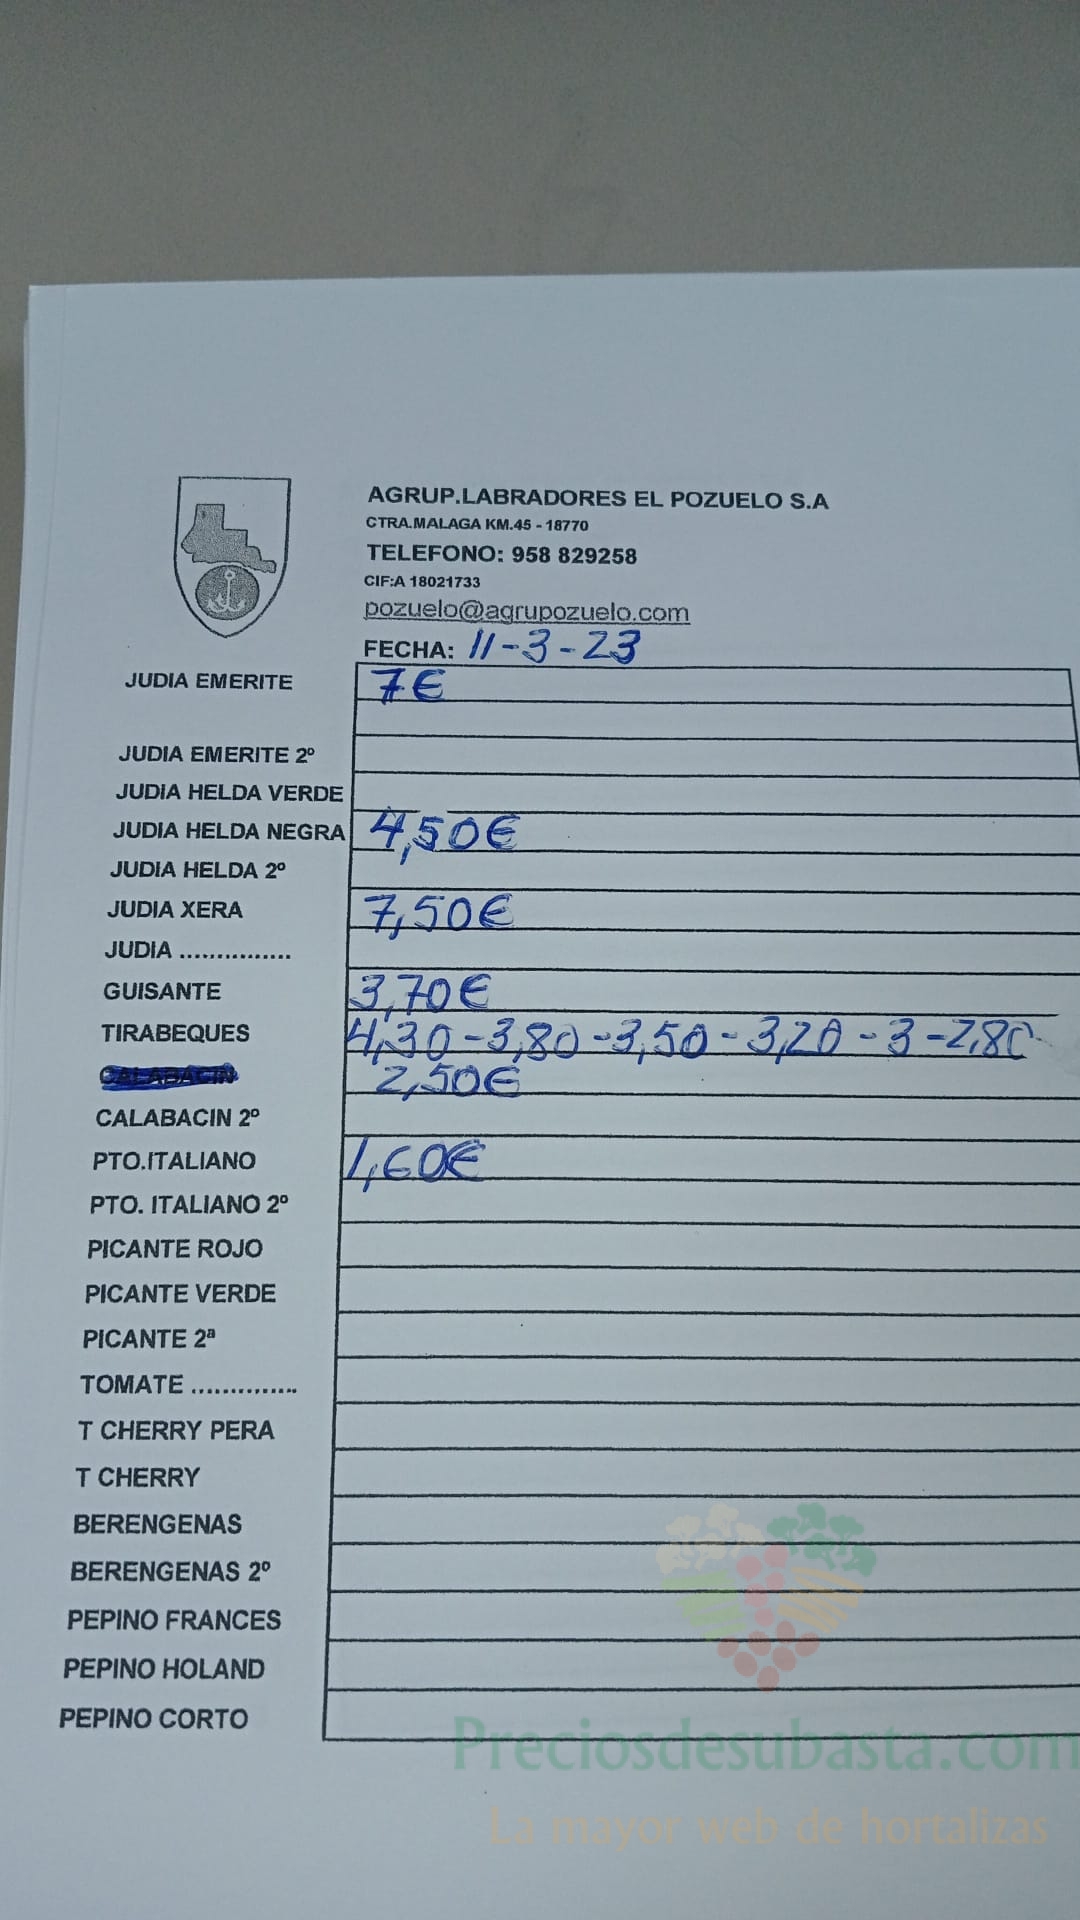 AGRUP.LABRADORES EL POZUELO S.A
CTRA.MALAGA KM.45 - 18770
TELEFONO: 958 829258
CIF:A 18021733
pozuelo@agrupozuelo.com
FECHA: 11-3-23
JUDIA EMERITE 7€
JUDIA EMERITE 2º
JUDIA HELDA VERDE
JUDIA HELDA NEGRA 4,50€
JUDIA HELDA 2º
JUDIA XERA 7,50€
JUDIA ...............
GUISANTE 3,70€
TIRABEQUES 4,30-3,80-3,50-3,20-3-2,80-
CALABACIN 2,50€
CALABACIN 2º
PTO.ITALIANO 1,60€
PTO. ITALIANO 2º
PICANTE ROJO
PICANTE VERDE
PICANTE 2ª
TOMATE ..............
T CHERRY PERA
T CHERRY
BERENGENAS
BERENGENAS 2º
PEPINO FRANCES
PEPINO HOLAND
PEPINO CORTO
Preciosdesubasta.com
La mayor web de hortalizas